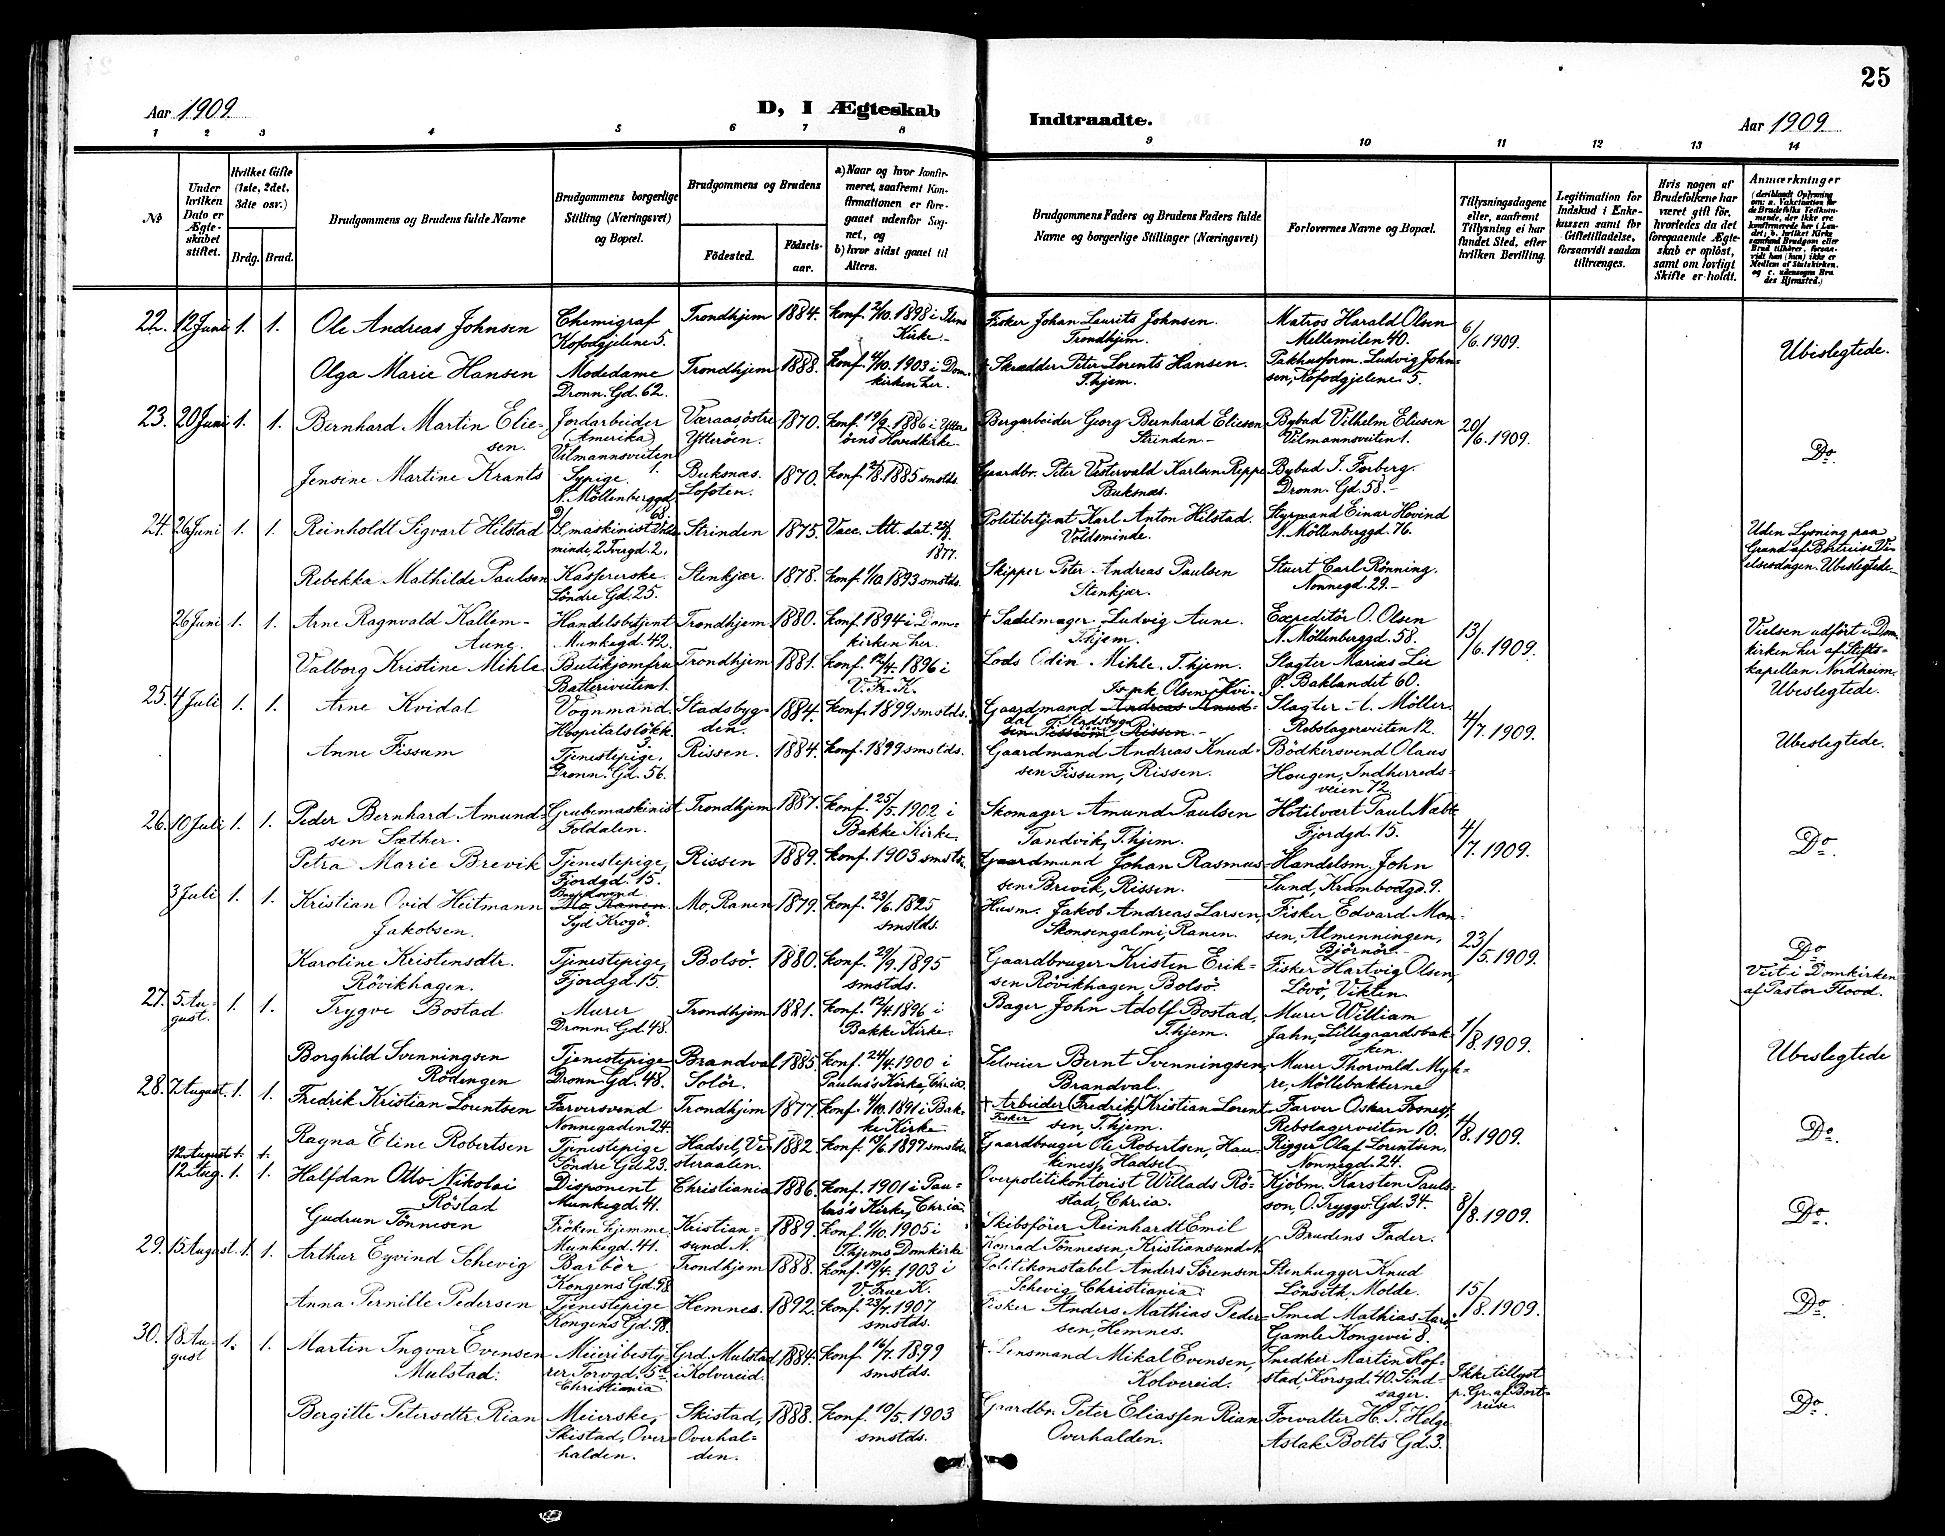 25
Aar 1909.
D, I Ægteskab
Indtraadte.
Aar 1909.
1 2 3 4 5 6 7 8 9 10 11 12 13 14
No
Under hvilken Dato er Ægteskabet stiftet.
Hvilket Gifte (1ste, 2det, 3dte osv.)
Brdg. Brud.
Brudgommens og Brudens fulde Navne
Brudgommens borgerlige Stilling (Næringsvei) og Bopæl.
Brudgommens og Brudens
Fødested.
Fødselsaar.
a) Naar og hvor konfirmeret, saafremt Konfirmationen er foregaaet udenfor Sognet, og
b) hvor sidst gaaet til Alters.
Brudgommens Faders og Brudens Faders fulde Navne og borgerlige Stillinger (Næringsvei)
Forlovernes Navne og Bopæl.
Tillysningsdagene eller, saafremt Tillysning ei har fundet Sted, efter hvilken Bevilling.
Legitimation for Indskud i Enkekassen samt for Giftetilladelse, forsaavidt saadan tiltrænges.
Hvis nogen af Brudefolkene har været gift før, hvorledes da det foregaaende Ægteskab er opløst, samt om lovligt Skifte er holdt.
Anmærkninger
22. 12 Juni 1. 1. Ole Andreas Johnsen
Chemigraf Kofodgjelene 5.
Trondhjem 1884. Konf. 2/10. 1898 i Ilens Kirke.
Fisker Johan Laurits Johnsen. Trondhjem.
Matros Harald Olsen Mellemilen 40.
6/6. 1909.
Ubeslegtede.
Olga Marie Hansen
Modedame Dronn. Gd. 62.
Trondhjem 1888. Konf. 4/10. 1903 i Domkirken her.
† Skrædder Peter Lorents Hansen. T.hjem.
Pakhusform. Ludvig Johnsen, Kofodgjelene 5.
23. 20 Juni 1. 1. Bernhard Martin Eliesen.
Jordarbeider (Amerika) Vilmannsveiten 1.
Væraasøstre Ytterøen. 1870. Konf. 19/9. 1886 i Ytterøens Hovedkirke.
Bergarbeider Georg Bernhard Eliesen Strinden.
Bybud Vilhelm Eliesen Vilmannsveiten 1.
20/6. 1909.
Do.
Jensine Martine Krants
Sypige. N. Möllenberggd. 68.
Buksnæs. Lofoten. 1870. Konf. 1885 smstds.
Gaardbr. Peter Vestervald Karlsen Reppe Buksnæs.
Bybud J. Forberg. Dronn. Gd. 58.
24. 26 Juni 1. 1. Reinholdt Sigvart Hilstad
Strinden 1875. Vacc. Att. dat. 1877.
Politibetjent Karl Anton Hilstad. Voldsminde.
Styrmand Einar Hovind N. Möllenberggd. 76.
Uden Lysning paa Grund af Bortreise Vielsesdagen. Ubeslegtede.
Rebekka Mathilde Paulsen
Kaspererske. Söndre Gd. 25.
Stenkjær. 1878. Konf. 1/10. 1893 smstds.
Skipper Peter Andreas Paulsen Stenkjær.
Stuert Carl Rönning. Nonnegd. 29.
26 Juni 1. 1. Arne Ragnvald Kallem-Aune.
Handelsbetjent Munkegd. 42.
Trondhjem 1880. Konf. 1894 i Domkirken her.
† Sadelmager Ludvig Aune. T.hjem.
Expeditör O. Olsen N. Möllenberggd. 58.
13/6. 1909.
Vielsen udført i Domkirken her af Stiftskapellan Nordheim. Ubeslegtede.
Valborg Kristine Mihle
Butikjomfru Batteriveiten 1.
Trondhjem 1881. Konf. 12/4. 1896 i V. Fr. K.
Lods Odin Mihle. T.hjem.
Slagter Marius Lie Ø. Baklandet 60.
25. 4 Juli 1. 1. Arne Kvidal
Vognmand Hospitalslökk. 3.
Stadsbygden. 1884. Konf. 1899 smstds.
Gaardmand Is.pk. Olsen Kvidal Stadsbygd
Slagter A. Möller. Rebslagerveiten 12.
4/7. 1909.
Ubeslegtede.
Anne Fissum
Tjenestepige, Dronn. Gd. 56.
Rissen. 1884. Konf. 1899 smstds.
Gaardmand Andreas Knudsen Fissum, Rissen.
Bödkersvend Olaus Hougen, Indherredsveien 72
26. 10 Juli 1. 1. Peder Bernhard Amundsen Sæther.
Grubemaskinist Foldalen.
Trondhjem 1887. Konf. 25/5. 1902 i Bakke Kirke.
Skomager Amund Paulsen Tandvik, T.hjem.
Hotelvært Paul Næbb Fjordgd. 15.
4/7. 1909.
Do.
Petra Marie Brevik
Tjenestepige, Fjordgd. 15.
Rissen 1889. Konf. 1903 smstds.
Gaardmand Johan Rasmussen Brevik, Rissen.
Handelsm. John Sund, Krambodgd. 9.
3 Juli 1. 1. Kristian Ovid Heitmann Jakobsen.
Mo Ranen. Syd Krogö.
Mo, Ranen 1879. Konf. 23/6. 1895 smstds.
Husm. Jakob Andreas Larsen, Ranen.
Fisker Edvard Monsen, Almenningen, Björnör.
23/5. 1909.
Do.
Karoline Kristensdtr. Rövikhagen.
Tjenestepige, Fjordgd. 15.
Bolsö. 1880. Konf. 29/9. 1895 smstds.
Gaardbruger Kristen Eriksen Rövikhagen, Bolsö.
Fisker Hartvig Olsen, Lövö, Vikten.
Viet i Domkirken af Pastor Flood.
27. 5 August. 1. 1. Trygve Bostad
Murer Dronn. Gd. 48.
Trondhjem 1881. Konf. 12/4. 1896 i Bakke Kirke.
Bager John Adolf Bostad, T.hjem.
Murer William Jahn, Lillegaardsbakken.
1/8. 1909.
Ubeslegtede
Borghild Svenningsen Rödingen
Tjenestepige Dronn. Gd. 48.
Brandval Solör. 1885. Konf. 24/4. 1900 i Paulus's Kirke, Chr.ia.
Selveier Bernt Svenningsen Brandval.
Murer Thorvald Mykre, Möllebakkerne
28. 7 August. 1. 1. Fredrik Kristian Lorentsen
Farversvend Nonnegaden 24.
Trondhjem 1877. Konf. 4/10. 1891 i Bakke Kirke
† Arbeider (Fredrik) Kristian Lorentsen, T.hjem.
Fisker
Farver Oskar Fosnes, Rebslagerveiten 10.
1/8. 1909.
Do.
Ragna Eline Robertsen
Tjenestepige Söndre Gd. 23.
Hadsel, Vesteraalen. 1882 Konf. 13/6. 1897 smstds.
Gaardbruger Ole Robertsen, Haukenes, Hadsel
Rigger Olaf Lorentsen, Nonnegd. 24.
12 August 1. 1.
12 Aug. 1. 1. Halfdan Otto Nikolai Röstad
Disponent Munkegd. 41.
Christiania 1886. Konf. 1901 i Paulus's Kirke, Chr.ia.
Overpolitikontorist Willads Röstad, Chr.ia.
Kjöbm. Karsten Paulsson, O. Tryggv. Gd. 34.
8/8. 1909.
Do.
Gudrun Tönnesen
Fröken hjemme Munkegd. 41.
Kristiansund N. 1889. Konf. 1/10. 1905 i T.hjems Domkirke
Skibsförer Reinhardt Emil Konrad Tönnesen, Kristiansund N.
Brudens Fader.
29. 15 August. 1. 1. Arthur Eyvind Schevig
Barbér Kongens Gd. 98.
Trondhjem 1888. Konf. 19/4. 1903 i V. Frue K.
Politikonstabel Anders Sörensen Schevig Christiania
Stenhugger Knud Lönseth, Molde.
15/8. 1909.
Do.
Anna Pernille Pedersen
Tjenestepige Kongens Gd. 98.
Hemnes. 1892. Konf. 23/7. 1907 smstds.
Fisker Anders Mathias Pedersen, Hemnes.
Smed Mathias Gamle Kongevei 8.
30. 18 August 1. 1. Martin Ingvar Evensen Mulstad.
Meieribestyrer Torvgd. Christiania
Grd. Mulstad i Kolvereid. 1884. Konf. 16/7. 1899 smstds.
† Lensmand Mikal Evensen, Kolvereid.
Snedker Martin Hofstad, Korsgd. 40.
Ikke tillyst p. Gr. af Bortreise.
Do.
Bergitte Petersdtr Rian
Meierske, Skistad, Overhalden.
Skistad, Overhalden. 1888. Konf. 10/5. 1903 smstds.
Gaardbr. Peter Eliassen Rian Overhalden.
Forvalter H. J. Helge Aslak Bolts Gd. 3.